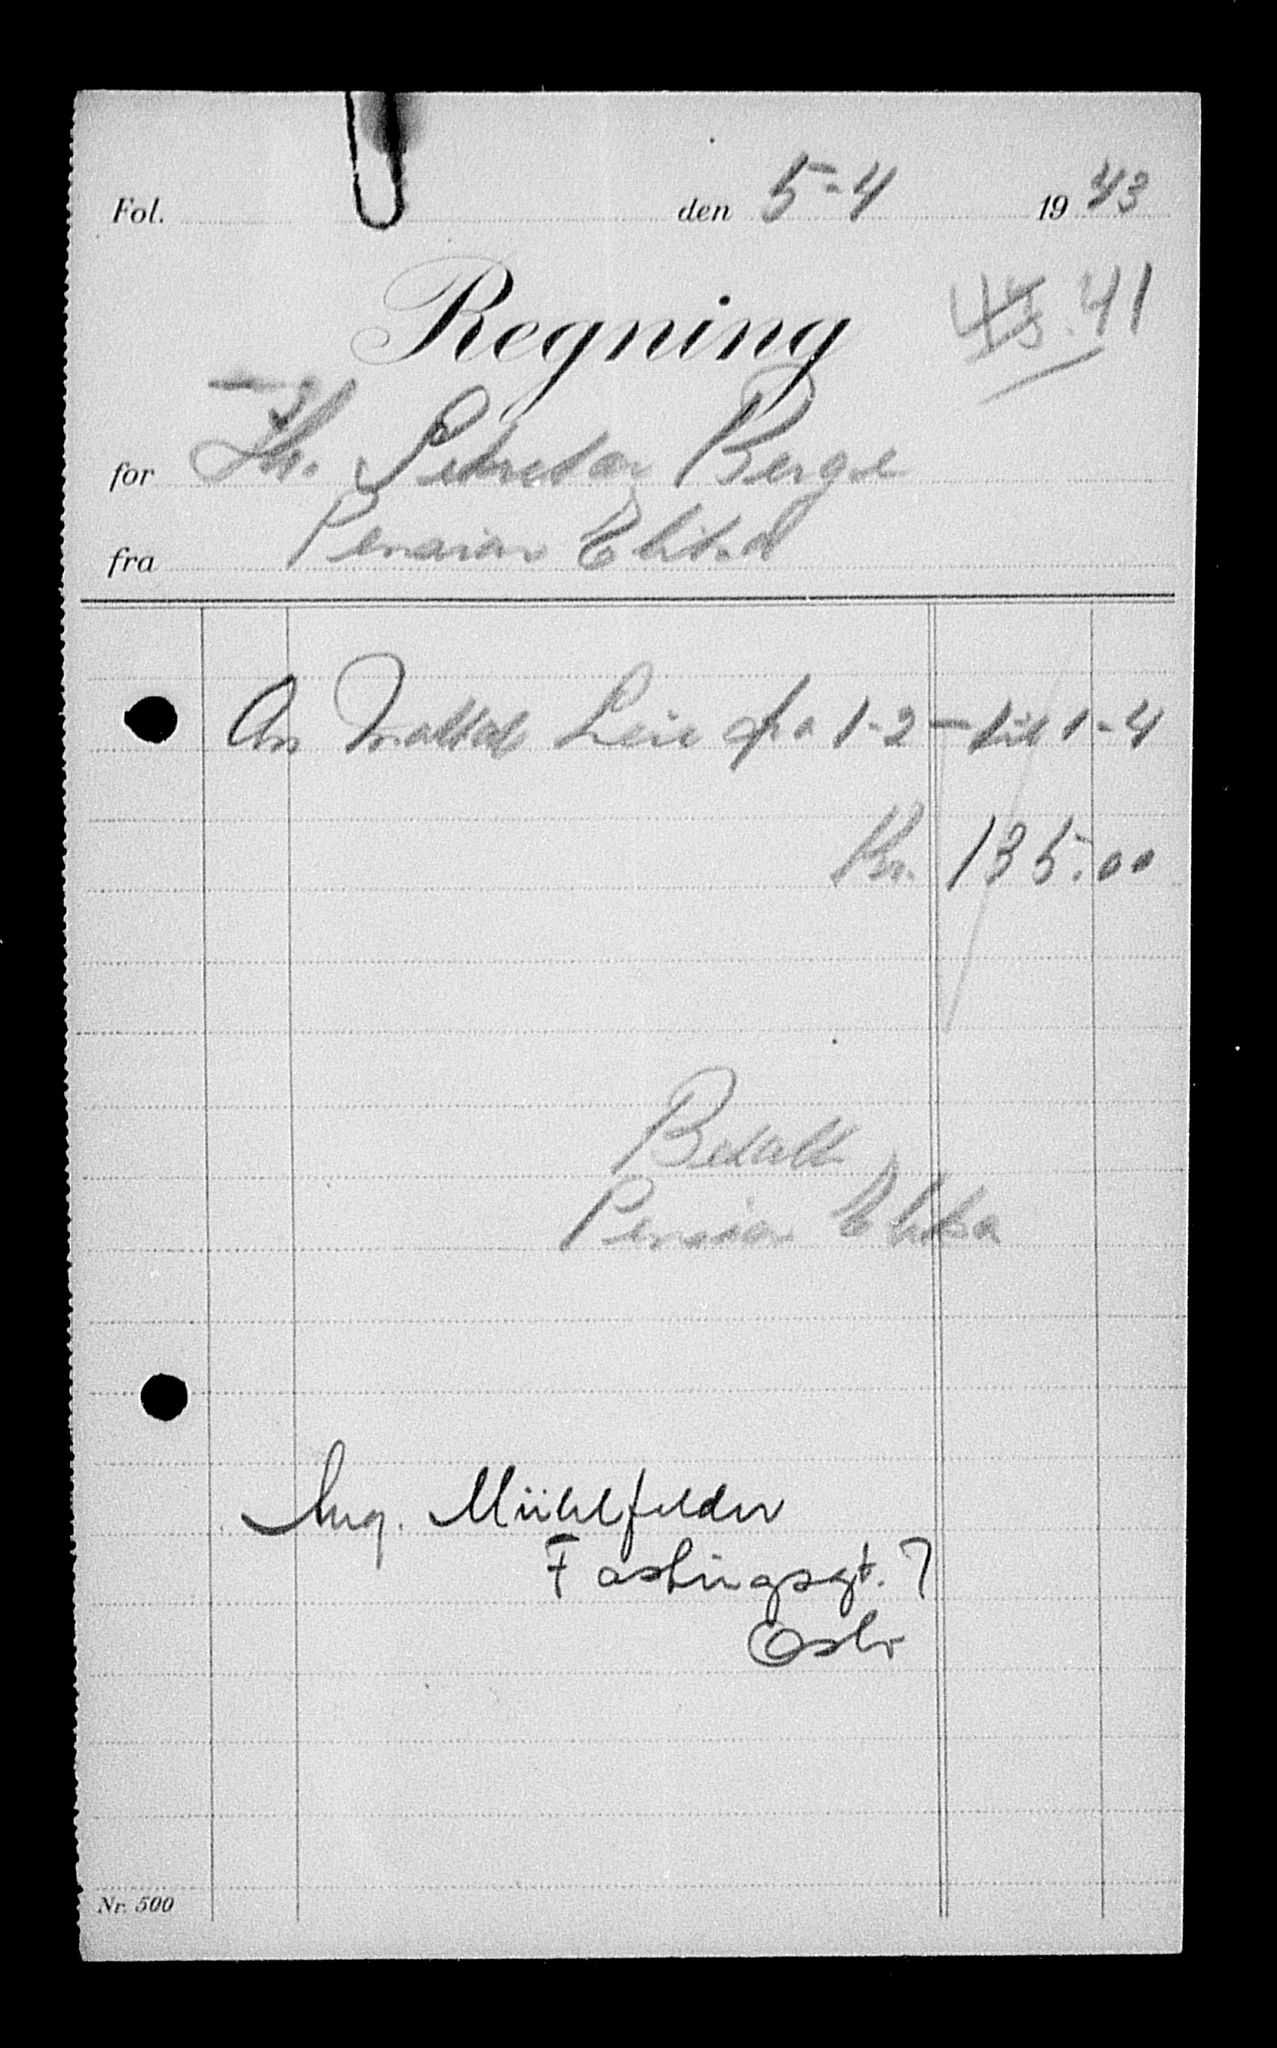 Fol. den 5-4 1943
Regning
41
for Hr. Sekretær Berge
fra Pension Elita
An Leie fra 1-2 - til 1-4
Kr. 135.00
Betalt
Pension Elita
Ang. Mühlfelder
Fastingsgt. 7
Oslo
Nr. 500